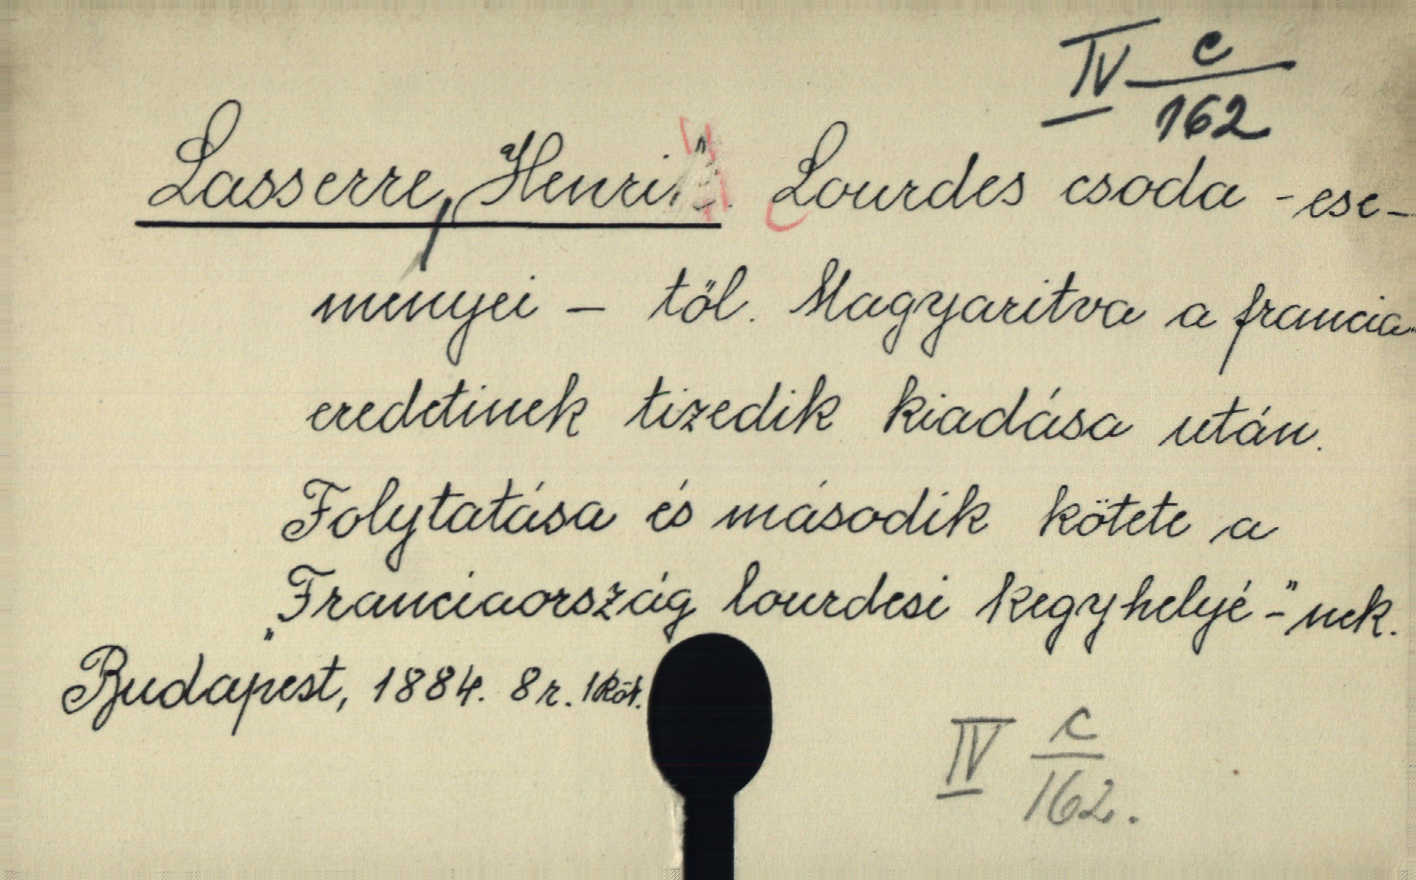 IV c/162
Lasserre, Henri Lourdes csoda-ese-
ményei - től. Magyaritva a francia
eredetinek tizedik kiadása után.
Folytatása és második kötete a
"Franciaország lourdesi kegyhelyé-"nek.
Budapest, 1884. 8r. 1 köt.
IV c/162.